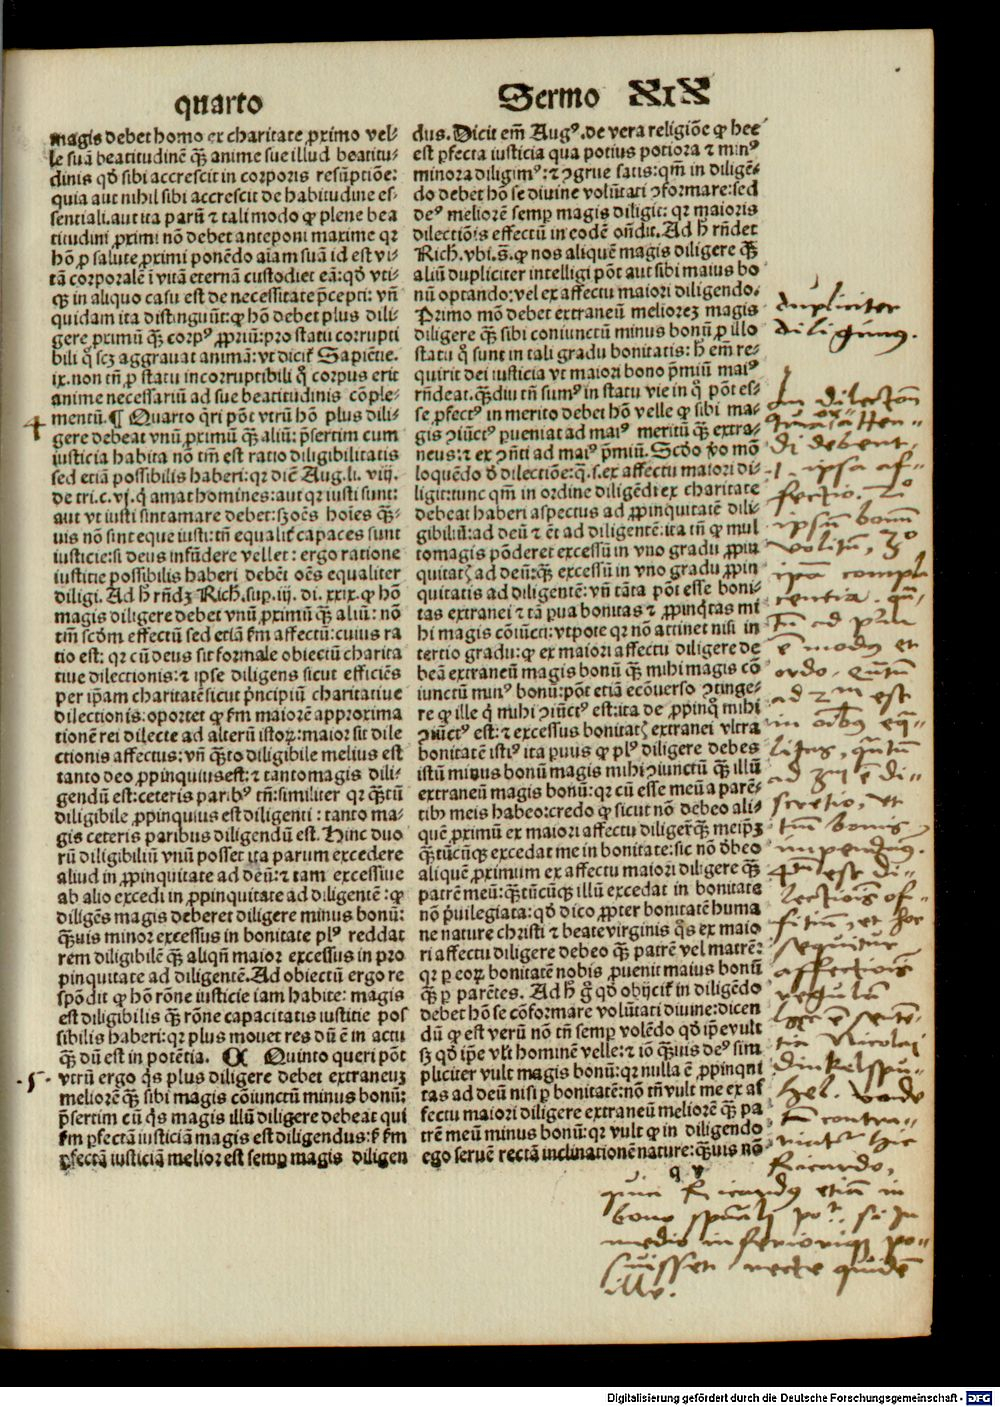 quarto
Sermo XIX
magis debet homo ex charitate ꝓximo vel-
le suã beatitudinẽ q̃ꝫ anime sue illud beatitu-
dinis qď sibi accrescit in corporis resũptiõe:
quia aut nihil sibi accrescit de habitudine es-
sentiali. aut ita parũ ⁊ tali modo ꝙ plene bea
titudini ꝓximi nõ debet anteponi maxime qꝛ
hõ ꝓ salute ꝓximi ponẽdo aĩam suã id est vi-
tã corporalẽ ĩ vitã eternã custodiet eã: qď vti-
qꝫ in aliquo casu est de necessitate p̃cepti: vñ
quidam ita distinguũt: ꝙ hõ debet plus dili
gere ꝓximũ q̃ꝫ corpꝰ ꝓpriũ: pro statu corrupti
bili q̃ scꝫ aggrauat animã: vt dicit̃ Sapiẽtie.
ix. non tñ ꝓ statu incorruptibili q̃ corpus erit
anime necessariũ ad sue beatitudinis cõple-
mentũ. ¶ Quarto q̃ri põt vtrũ hõ plus dili
4
gere debeat vnũ ꝓximũ q̃ꝫ aliũ: p̃sertim cum
iusticia habita nõ tm̃ est ratio diligibilitatis
sed etiã possibilis haberi: qꝛ diẽ Aug. li. viij.
de tri. c. vj. q̃ amat homines: aut qꝛ iusti sunt:
aut vt iusti sint amare debet: sꝫ oẽs hoĩes q̃ꝫ-
uis nõ sint eque iusti: tñ equalit̃ capaces sunt
iusticie: si deus infũdere vellet: ergo ratione
iustitie possibilis haberi debẽt oẽs equaliter
diligi. Ad h̃ rñdꝫ Rich. sup. iij. di. xxix. ꝙ hõ
magis diligere debet vnũ ꝓximũ q̃ꝫ aliũ: nõ
tm̃ scďm effectũ sed etiã ẜm affectũ: cuius ra
tio est: qꝛ cũ deus sit formale obiectũ charita
tiue dilectionis: ⁊ ipse diligens sicut efficiẽs
per ip̃am charitatẽ sicut p̃ncipiũ charitatiue
dilectionis: oportet ꝙ ẜm maiorẽ approxima
tionẽ rei dilecte ad alterũ istoꝝ: maior sit dile
ctionis affectus: vñ q̃ꝫto diligibile melius est
tanto deo ꝓpinquius est: ⁊ tanto magis dili-
gendũ est: ceteris paribꝰ tñ: similiter qꝛ q̃ꝫtũ
diligibile ꝓpinquius est diligenti: tanto ma-
gis ceteris paribus diligendũ est. Hinc duo
rũ diligibiliũ vnũ posset ita parum excedere
aliud in ꝓpinquitate ad deũ: ⁊ tam excessiue
ab alio excedi in ꝓpinquitate ad diligentẽ: ꝙ
diligẽs magis deberet diligere minus bonũ:
q̃ꝫuis minor excessus in bonitate plꝰ reddat
rem diligibilẽ q̃ꝫ aliqñ maior excessus in pro
pinquitate ad diligentẽ. Ad obiectũ ergo re
spõdit ꝙ hõ rõne iusticie iam habite: magis
est diligibilis q̃ꝫ rõne capacitatis iustitie pos
sibilis haberi: qꝛ plus mouet res dũ ẽ in actu
q̃ꝫ dũ est in potẽtia. ¶ Quinto queri põt
.5.
vtrũ ergo q̃s plus diligere debet extraneuꝫ
meliorẽ q̃ꝫ sibi magis cõiunctũ minus bonũ:
p̃sertim cũ q̃s magis illũ diligere debeat qui
ẜm ꝑfectã iusticiã magis est diligendus: sꝫ ẜm
ꝑfectã iusticiã melior est semꝑ magis diligen
dus. Dicit em̃ Augꝰ. de vera religiõe ꝙ hec
est ꝑfecta iusticia qua potius potiora ⁊ minꝰ
minora diligimꝰ: ⁊ ꝯgrue satis: qm̃ in diligẽ-
do debet hõ se diuine volũtati ꝯformare: sed
deꝰ meliorẽ semꝑ magis diligit: qꝛ maioris
dilectiõis effectũ in eodẽ oñdit. Ad h̃ rñdet
Rich. vbi. s̃. ꝙ nos aliquẽ magis diligere q̃ꝫ
aliũ dupliciter intelligi põt aut sibi maius bo
nũ optando: vel ex affectu maiori diligendo.
Primo mõ debet extraneũ melioreꝫ magis
diligere q̃ꝫ sibi coniunctũ minus bonũ ꝓ illo
statu q̃ sunt in tali gradu bonitatis: h̃ em̃ re-
quirit dei iusticia vt maiori bono p̃miũ maiꝰ
rñdeat. q̃ꝫdiu tñ sumꝰ in statu vie in q̃ põt es-
se ꝑfectꝰ in merito debet hõ velle ꝙ sibi ma-
gis ꝯiũctꝰ ꝑueniat ad maiꝰ meritũ q̃ꝫ extra-
neus: ⁊ ex ꝯñti ad maiꝰ p̃miũ. Scďo v̊o mõ
loquẽdo ď dilectiõe: q̃. s. ex affectu maiori di-
ligit: tunc qm̃ in ordine diligẽdi ex charitate
debeat haberi aspectus ad ꝓpinquitatẽ dili-
gibiliũ: ad deũ ⁊ ẽt ad diligentẽ: ita tñ ꝙ mul
tomagis põderet excessũ in vno gradu ꝓpin
quitatꝭ ad deũ: q̃ꝫ excessũ in vno gradu ꝓpin
quitatis ad diligentẽ: vñ tãta põt esse boni-
tas extranei ⁊ tã ꝑua bonitas ⁊ ꝓpinq̃tas mi
hi magis cõiũcti: vtpote qꝛ nõ attinet nisi in
tertio gradu: ꝙ ex maiori affectu diligere de
beã extraneũ magis bonũ q̃ꝫ mihi magis cõ
iunctũ minꝰ bonũ: põt etiã ecõuerso ꝯtinge-
re ꝙ ille q̃ mihi ꝯiũctꝰ est: ita de ꝓpinq̃ mihi
ꝯiũctꝰ est: ⁊ excessus bonitatꝭ extranei vltra
bonitatẽ istiꝰ ita ꝑuus ꝙ plꝰ diligere debes
istũ minus bonũ magis mihi ꝯiunctũ q̃ꝫ illũ
extraneũ magis bonũ: qꝛ cũ esse meũ a parẽ-
tibꝰ meis habeo: credo ꝙ sicut nõ debeo ali-
quẽ ꝓximũ ex maiori affectu diliger̃ q̃ꝫ meip̃ꝫ
q̃ꝫtũcũqꝫ excedat me in bonitate: sic nõ ďbeo
aliquẽ ꝓximum ex affectu maiori diligere q̃ꝫ
patrẽ meũ: q̃ꝫtũcũqꝫ illũ excedat in bonitate
nõ p̃uilegiata: qď dico ꝓpter bonitatẽ huma
ne nature christi ⁊ beate virginis q̃s ex maio
ri affectu diligere debeo q̃ꝫ patrẽ vel matrẽ:
qꝛ ꝑ eoꝝ bonitatẽ nobis ꝓuenit maius bonũ
q̃ꝫ ꝑ parẽtes. Ad h̃ g̃ qď obijcit̃ in diligẽdo
debet hõ se cõformare volũtati diuine: dicen
dũ ꝙ est verũ nõ tñ semꝑ volẽdo qď ip̃e vult
sꝫ qď ip̃e vlt̃ hominẽ velle: ⁊ iõ q̃ꝫuis deꝰ sim
pliciter vult magis bonũ: qꝛ nulla ẽ ꝓpinqui
tas ad deũ nisi ꝑ bonitatẽ: nõ tñ vult me ex af
fectu maiori diligere extraneũ meliorẽ q̃ꝫ pa
trẽ meũ minus bonũ: qꝛ vult ꝙ in diligendo
ego seruẽ rectã inclinationẽ nature: q̃ꝫuis nõ
q v
dupliciter
diligimus.
In dilectõn
attẽn-
di debent.
1. ipsa af-
fectio. 2º
ipsũ bonũ
volitũ, 3º
ipã compla
cencia.
ad
ẽ modus et
ordo. q̃ntũ
ad 2m est
in oĩbus eq̃-
litas, q̃ntũ
ad 3m ẽ di-
scretio, et
bonis
impendiũ.
4m est di-
lectionis ef-
et hoc
sequitur
affectionis
regulam
hec ẽ senten-
tia Nicolai
dinkelspu-
hel. Unde
tm̃ contra-
riatur hic
Ricardo,
quia Ricardus etiam in
bono sp̃uali po
medio inferiorique po-
suisset recte quidẽ
ille.
Digitalisierung gefördert durch die Deutsche Forschungsgemeinschaft - DFG